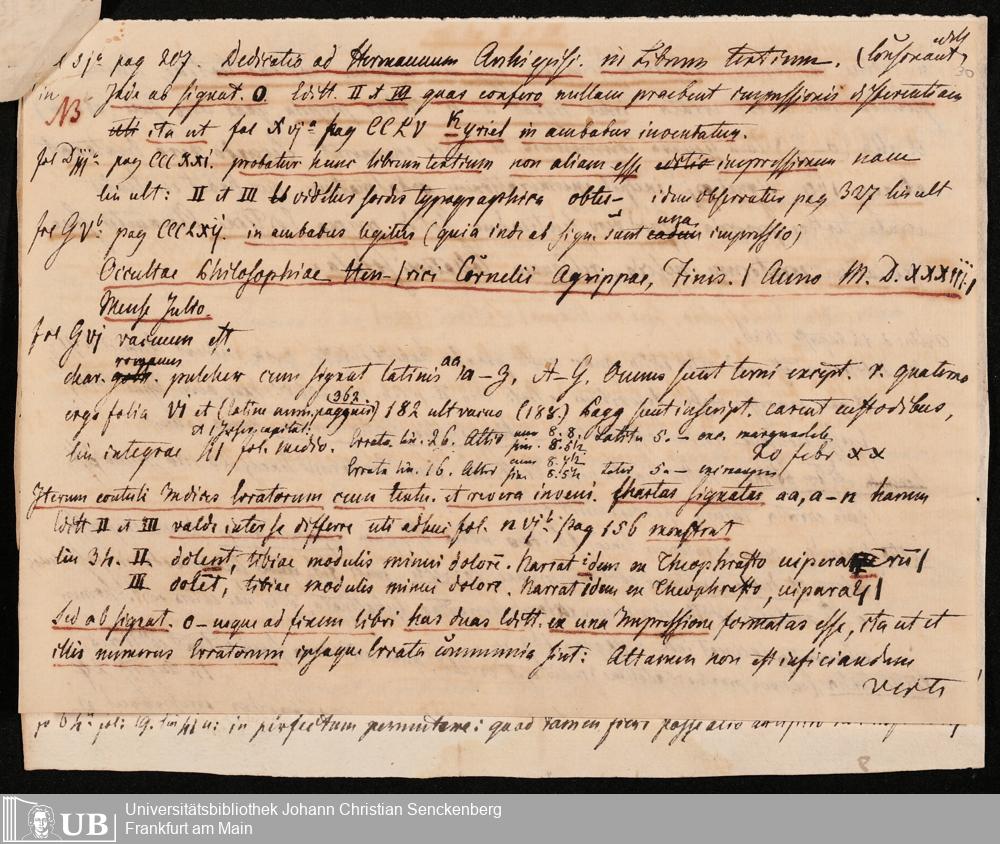 pag 207. Dedicatio ad Hermannum Archiepisc. in Librum tertium. (Consonant
30
in NB Inde ab signat. O. Editt. II et III quas confero nullam praebent impressionis differentiam
uti ita ut fol X vj a pag CCLV Kyriel in ambabus inveniatur.
fol D iij a pag CCCXXI. probatur hunc librum tertium non aliam esse impressionem nam
lin ult: II et III videtur sordes typographica idem observatur pag 327 lin ult
fol G V b. pag CCCLXij. in ambabus legitur (quia inde ab sign. sunt una eadem impressio)
Occultae Philosophiae Hen-/rici Cornelii Agrippae, Finis. / Anno M. D. XXXIII. /
Mense Julio.
fol G vj vacuum est.
romanus
char. goth. pulcher cum signat latinis aa, a–z, A–G. Omnes sunt terni except. r. quaterno
362
ergo folia VI et (latine num. pagginis) 182 ult vacuo (188.) Pagg sunt inscript. carent custodibus,
lin integrae 41 fol. medio. Errata lin. 26. Altit 8. 8, Latit 5. –
20 febr XX
Errata lin. 16. Altit 8. 4½ Latit 5. –
Iterum contuli Indices Erratorum cum textu. et revera inveni. Chartas signatas aa, a–n harum
Editt II et III valde inter se differre uti adhuc fol. n vj b. pag 156 monstrat
lin 34. II dolent, tibiae modulis minui dolore. Narrat idem ex Theophrasto
III dolet, tibiae modulis minui dolore. Narrat idem ex Theophrasto,
Sed ab signat. o – usque ad finem libri has duas Editt. ex una Impressione formatas esse, ita ut et
illis numerus Erratorum ipsaque Errata communia sint: Attamen non est inficiandum
verte
in perfectum permutare: quod tamen fieri posse
Universitätsbibliothek Johann Christian Senckenberg
UB Frankfurt am Main